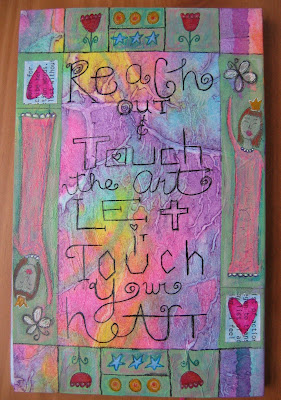 Reach
out
&
Touch
the art
LET
it
Touch
your
heArt